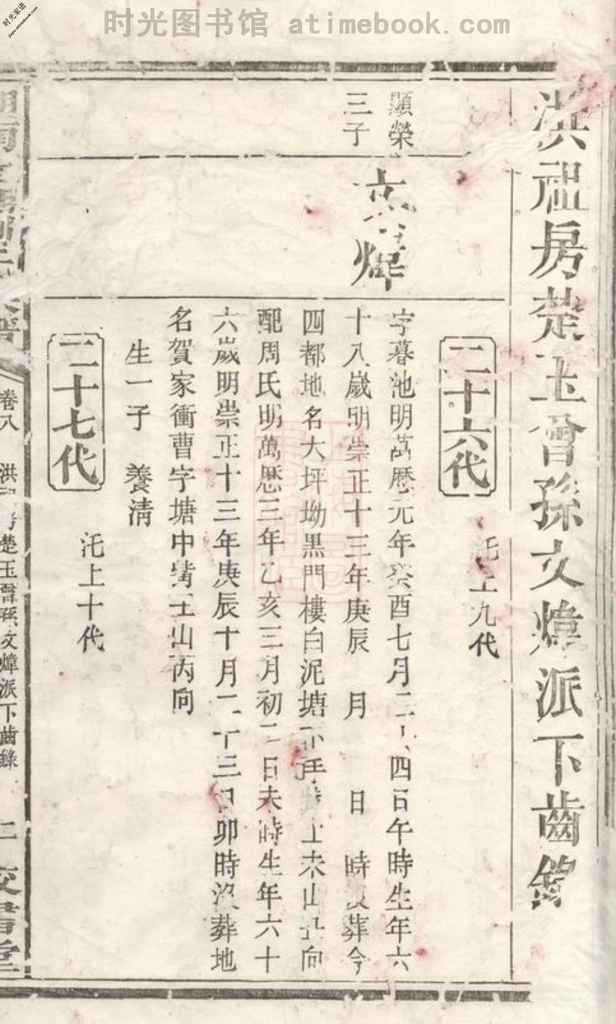 时光图书馆 atimebook.com
洪祖房楚玉曾孫文煒派下齒錄
二十六代
上九代
顯榮三子
文煒
字暮池明萬歷元年癸酉七月二十四日午時生年六
十八歲明崇正十三年庚辰 月 日 時沒葬今
四都地名大坪坳黑門樓白泥塘 未山 向
配周氏明萬歷三年乙亥三月初二日未時生年六十
六歲明崇正十三年庚辰十月二十三日卯時沒葬地
名賀家衝曹字塘中嘴壬山丙向
生一子 養清
二十七代
沰上十代
卷八 洪祖房楚玉曾孫文煒派下齒錄